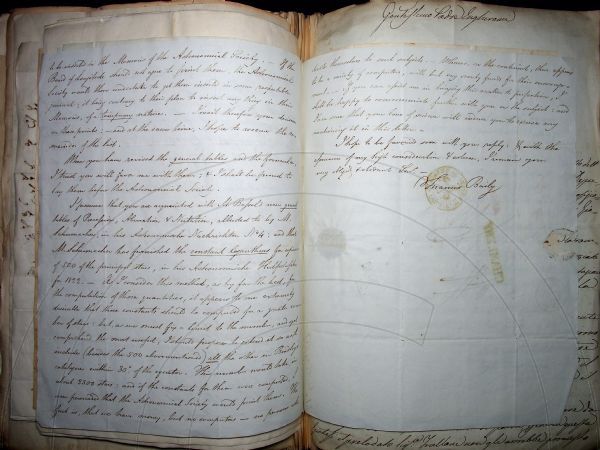 to be inserted in the Memoirs of the Astronomical Society. — If the
Board of Longitude should not agree to print them, the Astronomical
Society would then undertake to get them inserted in some respectable
journal; it being contrary to their plan to insert any thing in their
Memoirs, of a temporary nature. — I wait therefore your
on these points: — and at the same time, I hope to receive the re-
mainder of the list.
When you have received the general tables and the formulæ,
I trust you will favor me with them; & I shall be proud to
lay them before the Astronomical Society.
I presume that you are acquainted with Mr Bessel's new general
tables of Precession, Aberration & Nutation, alluded to by M.
Schumacher, in his Astronomische Nachrichten No 4; and that
M. Schumacher has furnished the constant logarithms for upwards
of 500 of the principal stars, in his Astronomische Hülfstafeln
for 1822. — As I consider this method, as by far the best, for
the computation of those quantities, it appears to me extremely
desirable that these constants should be computed for a greater num-
ber of stars: but as we must fix a limit to the number, and yet
comprehend the most useful, I should propose to extend it so as to
include (besides the 500 abovementioned) all the other in Bradley's
catalogue within 30° of the equator. This would take in
about 2500 stars; and if the constants for them were computed, I
am persuaded that the Astronomical Society would print them. The
fact is, that we have money, but no computers — no persons who
themselves to such subjects. Whereas, on the continent, there appears
to be a variety of computers, with but very scanty funds for their encourage-
ment. — If you can assist me in bringing this matter to perfection, I
shall be happy to communicate further with you on the subject; and
I am sure that your love of science will induce you to excuse any
in this letter.
I hope to be favored soon with your reply: & with the
assurance of my high consideration & esteem, I remain your
very obedt & devoted Servt
Francis Baily